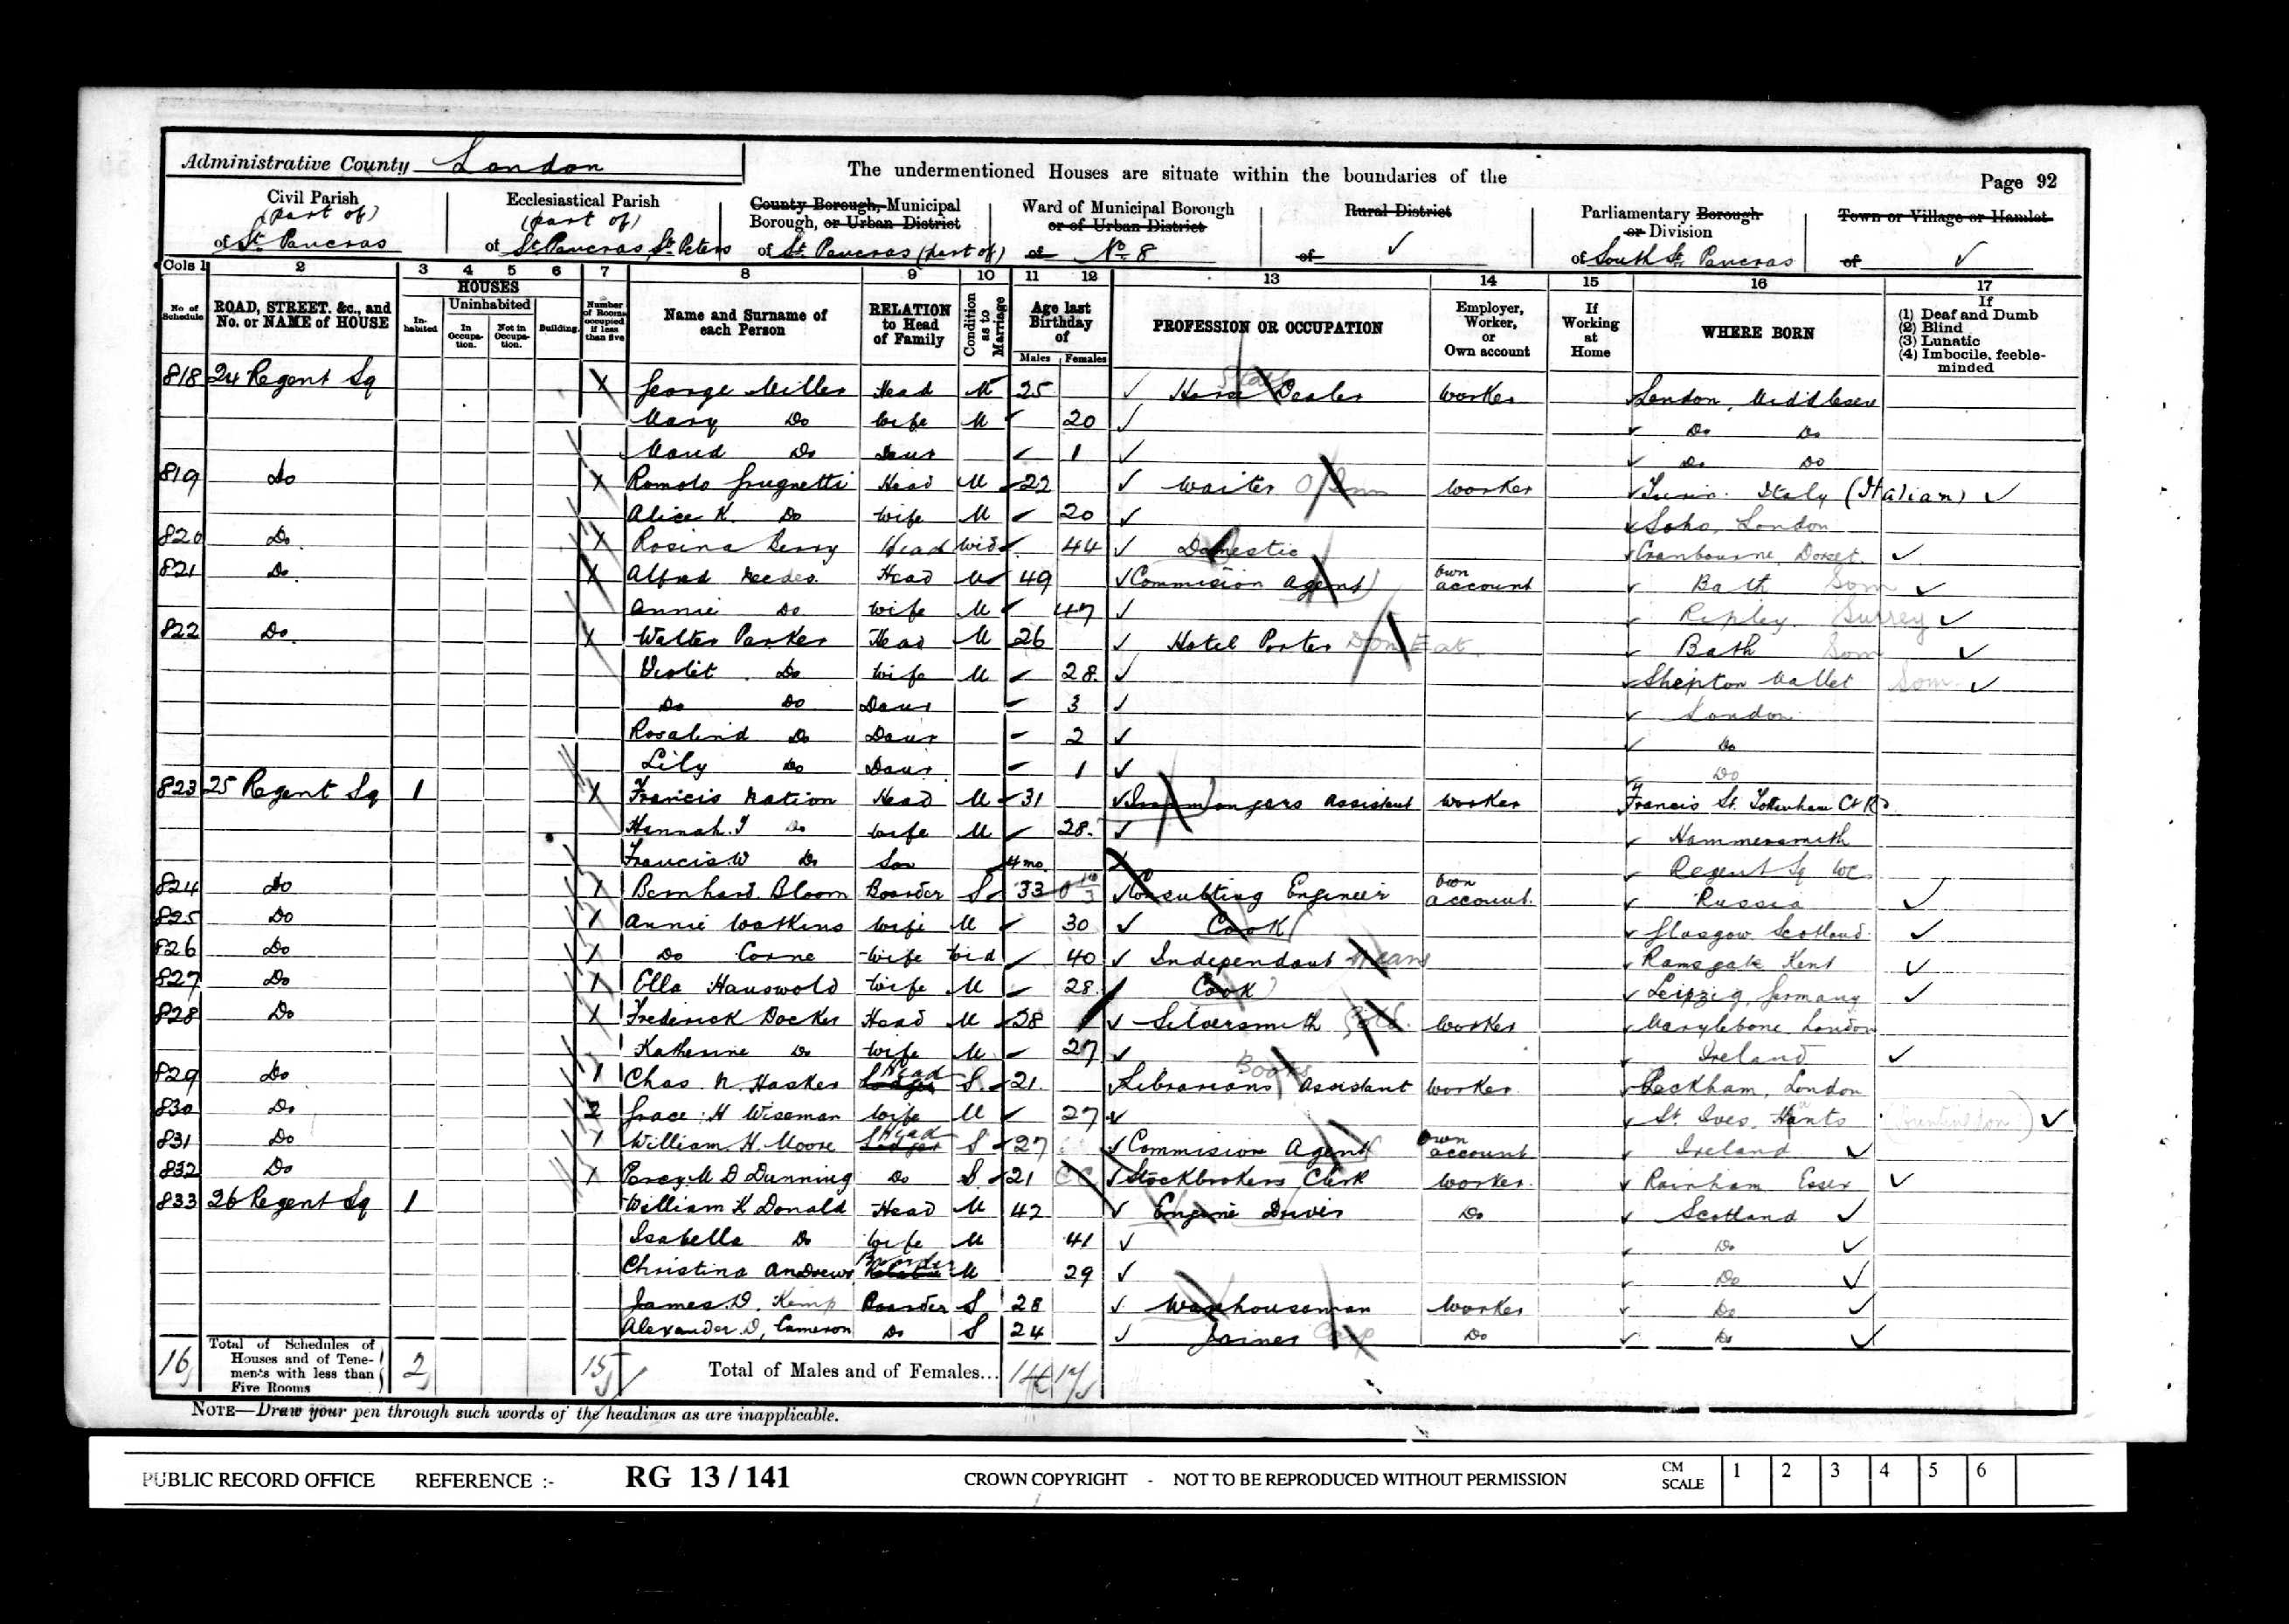 Administrative County London
The undermentioned Houses are situate within the boundaries of the
Page 92
Civil Parish (part of) of St. Pancras
Ecclesiastical Parish (part of) of St Pancras, St. Peters
County Borough, Municipal Borough, or Urban District of St. Pancras (part of)
Ward of Municipal Borough or of Urban District of No. 8
Rural District of ✓
Parliamentary Borough or Division of South St. Pancras
Town or Village or Hamlet of ✓
Cols 1 2 3 4 5 6 7 8 9 10 11 12 13 14 15 16 17
No of Schedule
ROAD, STREET, &c., and No. or NAME of HOUSE
HOUSES
Inhabited
Uninhabited
In Occupation.
Not in Occupation.
Building.
Number of Rooms occupied if less than five
Name and Surname of each Person
RELATION to Head of Family
Condition as to Marriage
Age last Birthday of
Males Females
PROFESSION OR OCCUPATION
Employer, Worker, or Own account
If Working at Home
WHERE BORN
If
(1) Deaf and Dumb
(2) Blind
(3) Lunatic
(4) Imbecile, feeble-minded
818 24 Regent Sq George Miller Head M 25 Dealer Worker London, Middlesex
Mary Do Wife M 20 Do Do
Maud Do Daur 1 Do Do
819 Do Romolo Head M 22 Waiter Worker Italy (Italian)
Alice K. Do Wife M 20 Soho, London
820 Do Rosina Head Wid 44 Domestic Cranbourne, Dorset
821 Do Alfred Head M 49 Commision Agent Own account Bath Som
Annie Do Wife M 47 Ripley. Surrey
822 Do Walter Parker Head M 26 Hotel Porter Bath Som
Violit Do Wife M 28 Shepton Mallet Som
Do Do Daur 3 London
Rosalind Do Daur 2 Do
Lily Do Daur 1 Do
823 25 Regent Sq 1 Francis Nation Head M 31 Assistant Worker Francis St. Tottenham Ct Rd
Hannah. J Do Wife M 28 Hammersmith
Francis. W Do Son 4 mo Regent Sq WC
824 Do 1 Bernhard Bloom Boarder S 33 Consulting Engineer Own account Russia
825 Do 1 Annie Watkins Wife M 30 Cook Glasgow Scotland
826 Do 1 Do Corne Wife Wid 40 Independant Means Ramsgate Kent
827 Do 1 Ella Hauswold Wife M 28 Cook Leipzig, Germany
828 Do 1 Frederick Docker Head M 28 Silversmith Gold Worker Marylebone London
Katherine Do Wife M 27 Ireland
829 Do 1 Chas. N Hasker Lodger Head S 21 Librarians Books Assistant Worker Peckham, London
830 Do 2 Grace. H Wiseman Wife M 27 St. Ives, Hants (Huntingdon)
831 Do 1 William. H. Moore Lodger Head S 27 Commision Agent Own account Ireland
832 Do 1 Percy. M D Dunning Do S 21 Stockbrokers Clerk Worker Rainham Essex
833 26 Regent Sq 1 William K Donald Head M 42 Engine Driver Do Scotland
Isabella Do Wife M 41 Do
Christina Andrews Boarder M 29 Do
James. D. Kemp Boarder S 28 Warehouseman Worker Do
Alexander. D, Cameron Do S 24 Joiner Carp Do Do
16 Total of Schedules of Houses and of Tenements with less than Five Rooms 2 15 Total of Males and of Females... 14 17
NOTE—Draw your pen through such words of the headings as are inapplicable.
PUBLIC RECORD OFFICE REFERENCE :- RG 13 / 141 CROWN COPYRIGHT - NOT TO BE REPRODUCED WITHOUT PERMISSION CM SCALE 1 2 3 4 5 6